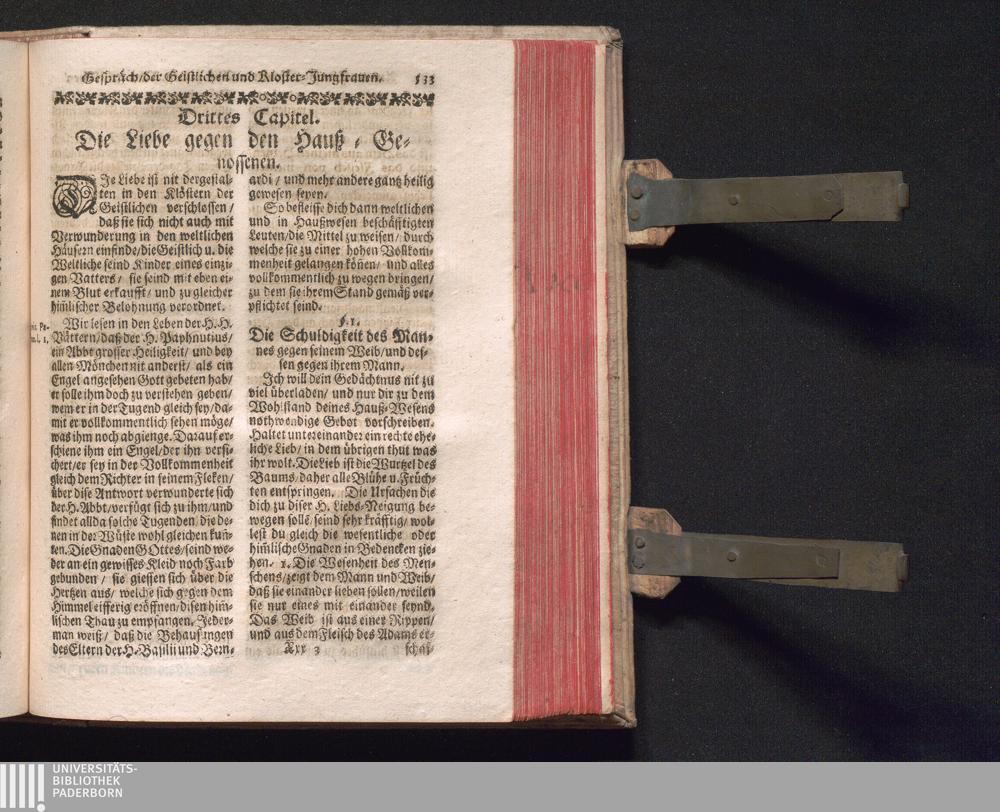 Gespräch/der Geistlichen und Kloster-Jungfrauen. 533
Drittes Capitel.
Die Liebe gegen den Hauß-Ge-
nossenen.
DJe Liebe ist nit dergestal-
ten in den Klöstern der
Geistlichen verschlossen/
daß sie sich nicht auch mit
Verwunderung in den weltlichen
Häusern einfinde/die Geistlich u. die
Weltliche seind Kinder eines einzi-
gen Vatters/ sie seind mit eben ei-
nem Blut erkaufft/ und zu gleicher
him̃lischer Belohnung verordnet.
Wir lesen in den Leben der H. H.
Vättern/daß der H. Paphnutius/
ein Abbt grosser Heiligkeit/ und bey
allen Mönchen nit anderst/ als ein
Engel angesehen Gott gebeten hab/
er solle ihm doch zu verstehen geben/
wem er in der Tugend gleich sey/da-
mit er vollkommentlich sehen möge/
was ihm noch abgienge. Darauf er-
schiene ihm ein Engel/der ihn versi-
chert/er sey in der Vollkommenheit
gleich dem Richter in seinem Fleken/
über dise Antwort verwunderte sich
der H. Abbt/verfügt sich zu ihm/und
findet allda solche Tugenden/die de-
nen in der Wüste wohl gleichen kun̄-
ten. Die Gnaden GOttes/seind we-
der an ein gewisses Kleid noch Farb
gebunden/ sie giessen sich über die
Hertzen aus/ welche sich gegen dem
Himmel eifferig eröffnen/disen him̃-
lischen Thau zu empfangen. Jeder-
man weiß/ daß die Behausungen
des Eltern der H. Basilii und Bern-
ardi/ und mehr andere gantz heilig
gewesen seyen.
So befleisse dich dann weltlichen
und in Haußwesen beschäfftigten
Leuten/die Mittel zu weisen/ durch
welche sie zu einer hohen Vollkom-
menheit gelangen kön̄en/ und alles
vollkommentlich zu wegen bringen/
zu dem sie ihrem Stand gemäß ver-
pflichtet seind.
§. 1.
Die Schuldigkeit des Man-
nes gegen seinem Weib/und des-
sen gegen ihrem Mann.
Jch will dein Gedächtnus nit zu
viel überladen/ und nur dir zu dem
Wohlstand deines Hauß-Wesens
nothwendige Gebot vorschreiben.
Haltet untereinander ein rechte ehe-
liche Lieb/ in dem übrigen thut was
ihr wolt. Die Lieb ist die Wurtzel des
Baums/daher alle Blühe u. Früch-
ten entspringen. Die Ursachen die
dich zu diser H. Liebs-Neigung be-
wegen solls/ seind sehr kräfftig/ wol-
lest du gleich die wesentliche oder
him̃lische Gnaden in Bedencken zie-
hen. 1. Die Wesenheit des Men-
schens/zeigt dem Mann und Weib/
daß sie einander lieben sollen/weilen
sie nur eines mit einander seynd.
Das Weib ist aus einer Rippen/
und aus dem Fleisch des Adams er-
Xxx 3 schaf-
UNIVERSITÄTS-
BIBLIOTHEK
PADERBORN